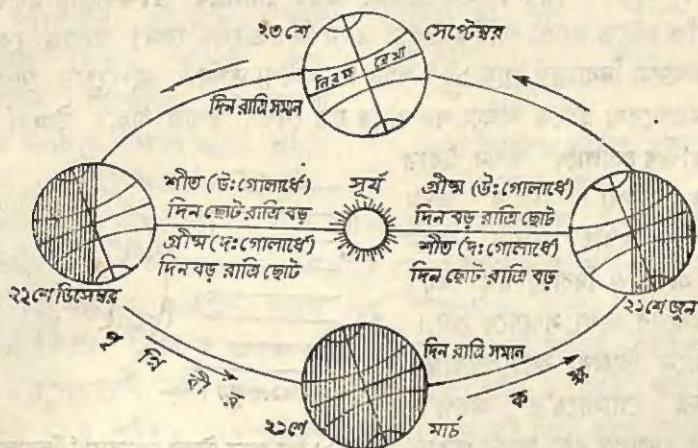 ২৩শে সেপ্টেম্বর
নিরক্ষ রেখা
দিন রাত্রি সমান
শীত (উঃ গোলার্ধে)
দিন ছোট রাত্রি বড়
গ্রীষ্ম (দঃ গোলার্ধে)
দিন বড় রাত্রি ছোট
সূর্য
গ্রীষ্ম (উঃ গোলার্ধে)
দিন বড় রাত্রি ছোট
শীত (দঃ গোলার্ধে)
দিন ছোট রাত্রি বড়
২২শে ডিসেম্বর
২১শে জুন
পৃথিবীর
দিন রাত্রি সমান
কক্ষ
২১শে মার্চ